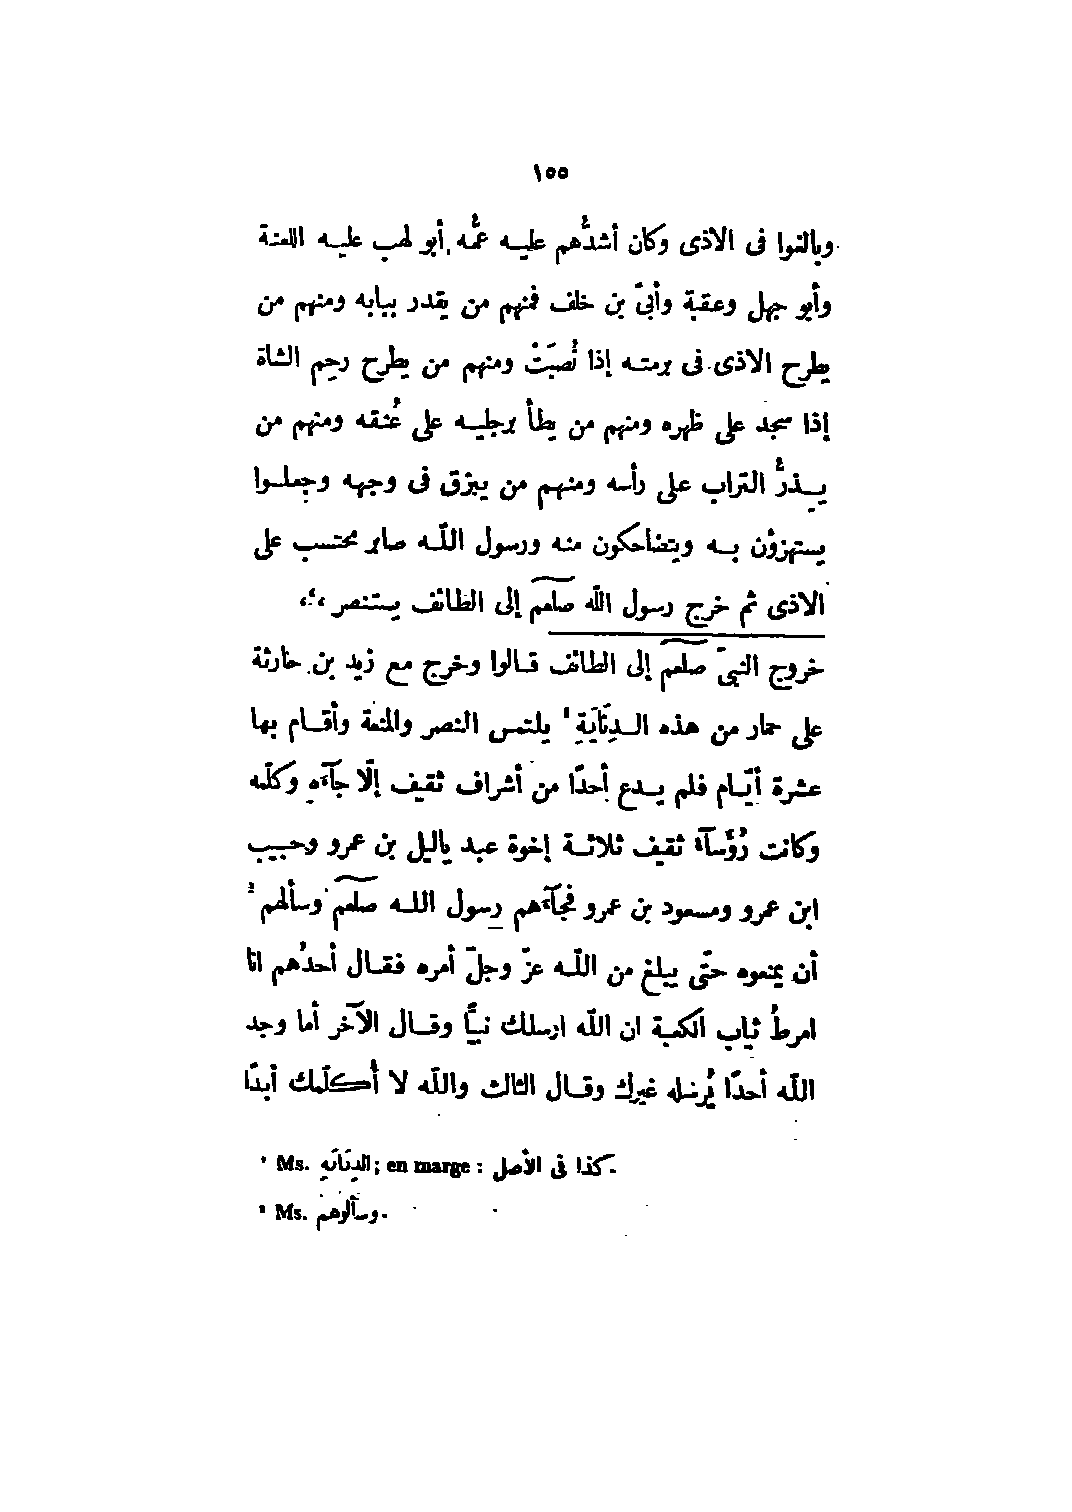 ١٥٥
وبالغوا فى الاذى وكان أشدُّهم عليه عمُّه أبو لهب عليه اللعنة
وأبو جهل وعقبة وأبىّ بن خلف فمنهم من يقدر ببابه ومنهم من
يطرح الاذى فى برمته إذا نُصبَتْ ومنهم من يطرح رحم الشاة
إذا سجد على ظهره ومنهم من يطأ برجليه على عُنقه ومنهم من
يذرُّ التراب على رأسه ومنهم من يبزق فى وجهه وجعلوا
يستهزؤن به ويتضاحكون منه ورسول اللّه صابر محتسب على
الاذى ثم خرج رسول اللّه صلعم إلى الطائف يستنصر ،؛،
خروج النبىّ صلعم إلى الطائف قالوا وخرج مع زيد بن حارثة
على حمار من هذه الدِنَّابَةِ ¹ يلتمس النصر والمنعة وأقام بها
عشرة أيّام فلم يدع أحدًا من أشراف ثقيف إلّا جآءه وكلّمه
وكانت رُؤسآء ثقيف ثلاثة إخوة عبد ياليل بن عمرو وحبيب
ابن عمرو ومسعود بن عمرو فجآءهم رسول اللـه صلعم وسألهم ²
أن يمنعوه حتّى يبلغ من اللّه عزّ وجلّ أمره فقال أحدُهم انا
امرطُ ثياب الكعبة ان اللّه ارسلك نبيًّا وقال الآخر أما وجد
اللّه أحدًا يُرسله غيرك وقال الثالث واللّه لا أُكلّمك أبدًا
¹ Ms. الدِنَانَهِ; en marge : كذا فى الأصل.
² Ms. وسألوهم.